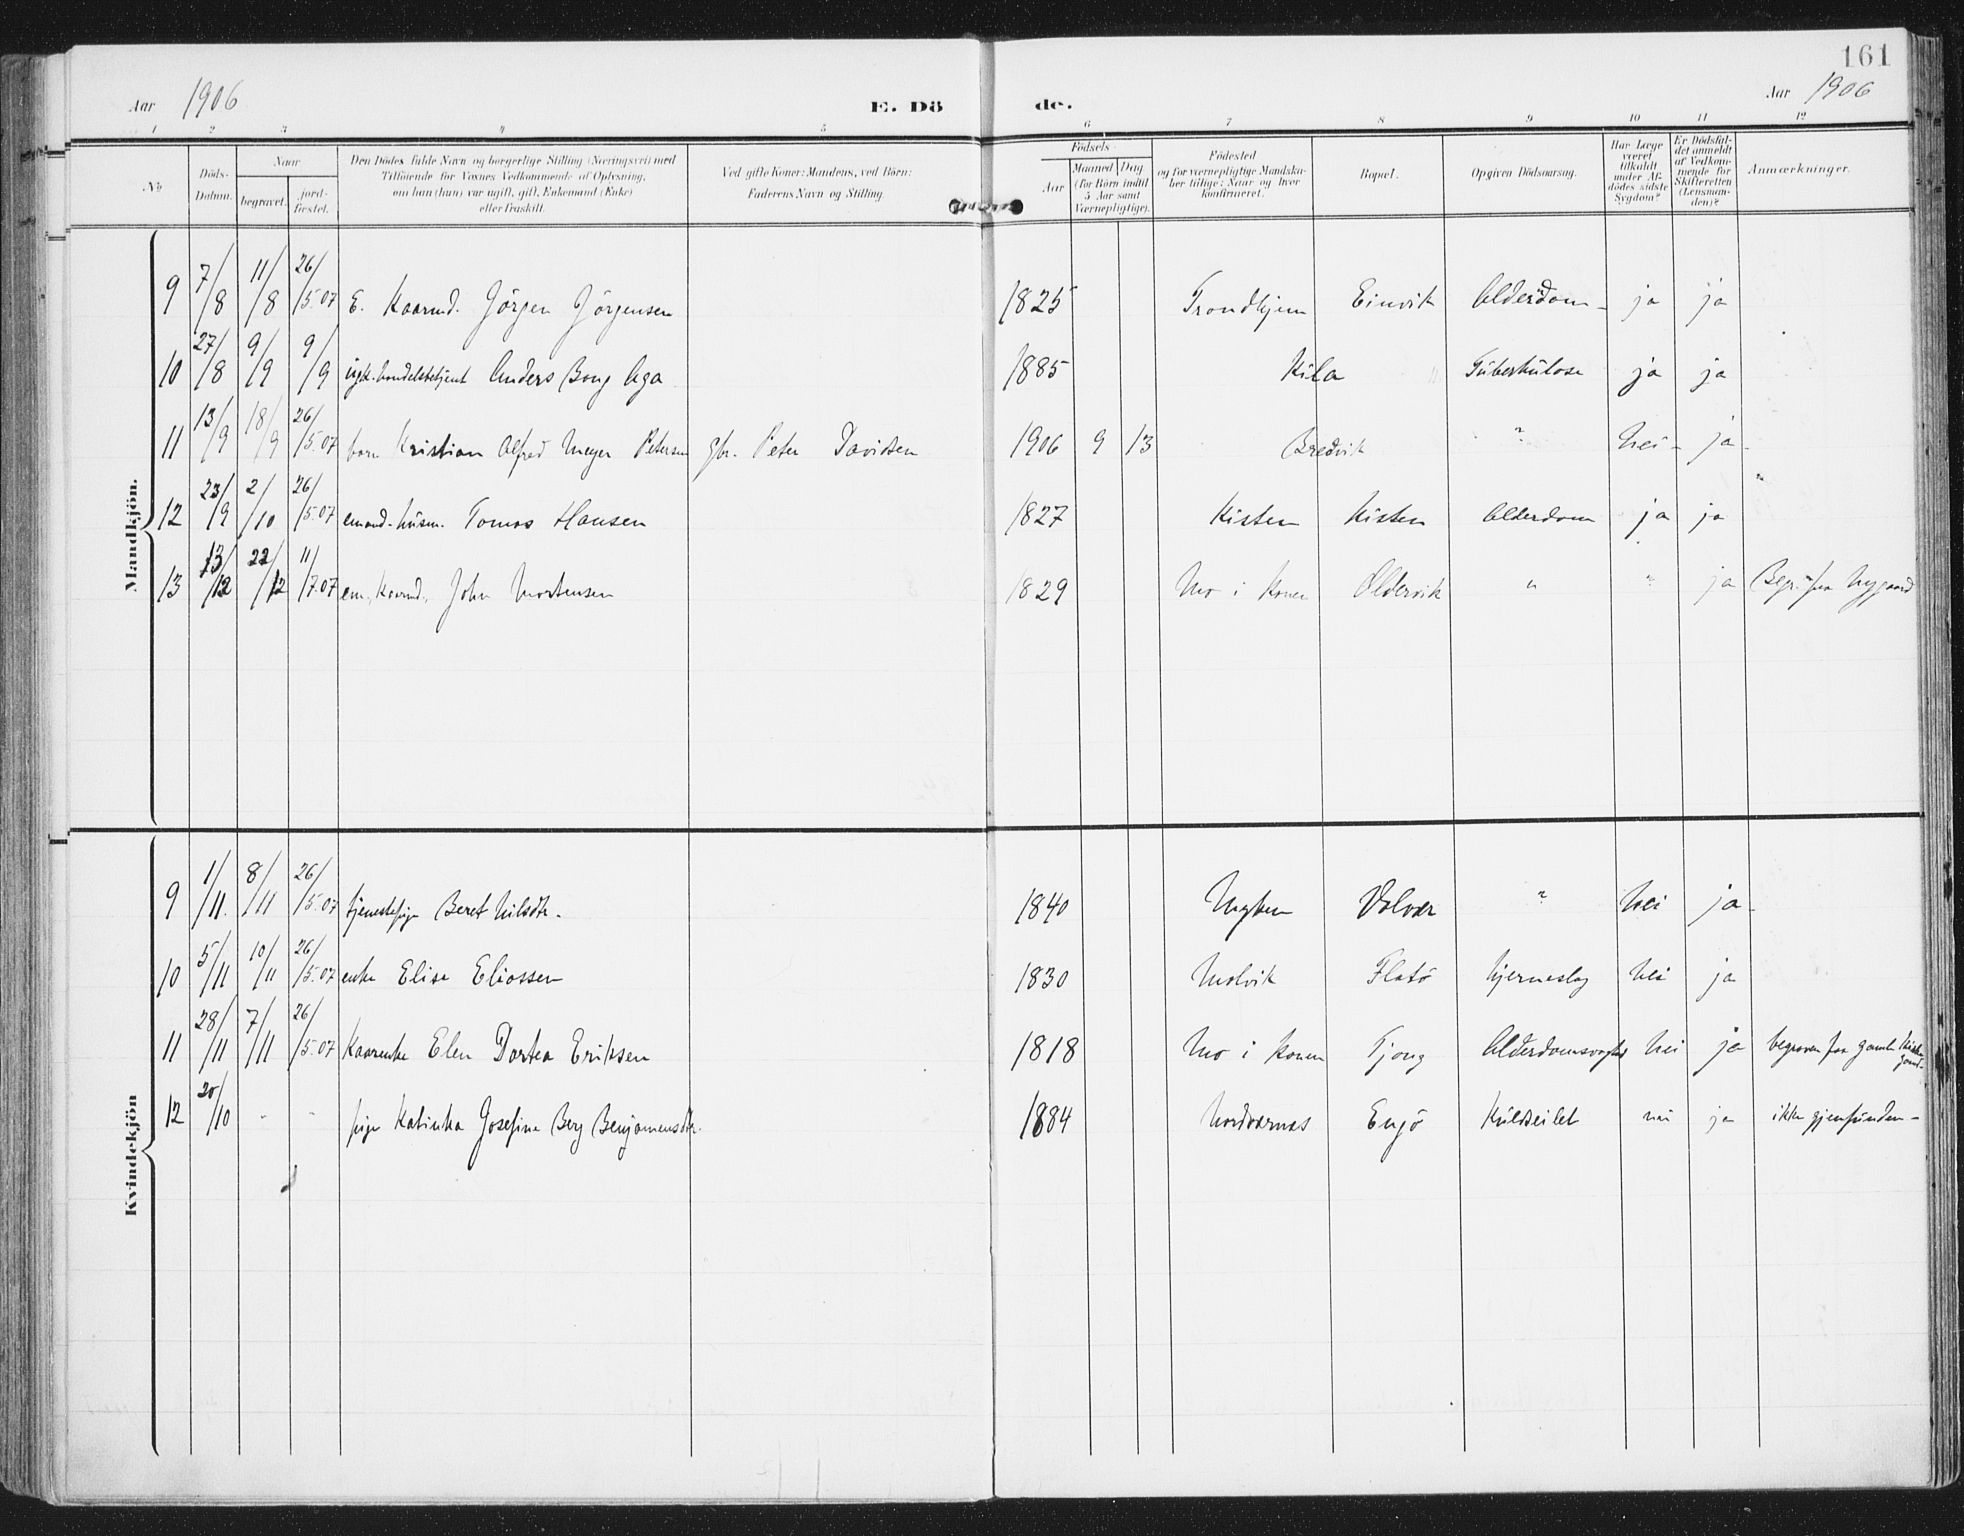 161
Aar 1906 E. Dö de. Aar 1906
1 2 3 4 5 6 7 8 9 10 11 12
No. Döds-Datum. Naar begravet. jord-fæstet. Den Dödes fulde Navn og borgerlige Stilling (Næringsvei) med Tilföiende for Voxnes Vedkommende af Oplysning, om han (hun) var ugift, gift, Enkemand (Enke) eller fraskilt. Ved gifte Koner: Mandens, ved Börn: Faderens Navn og Stilling. Födsels- Aar Maaned Dag (for Börn indtil 5 Aar samt Værnepligtige). Födested og for værnepligtige Mandskaber tillige: Naar og hvor konfirmeret. Bopæl. Opgiven Dödsaarsag. Har Læge været tilkaldt under Afdödes sidste Sygdom? Er Dödsfaldet anmeldt af Vedkommende for Skifteretten (Lensmanden)? Anmærkninger.
Mandkjön.
9 7/8 11/8 26/5.07 E. Kaarmd. Jörgen Jörgensen 1825 Trondhjem Einvik Alderdom ja ja
10 27/8 9/9 9/9 ugk. handelsbetjent Anders Bong Aga 1885 Kila " Tuberkulose ja ja
11 13/9 18/9 26/5.07 barn Kristian Alfred Meyer Petersen gbr. Peter Davidsen 1906 9 13 Bredvik ? Nei ja
12 23/9 2/10 26/5.07 emand. husm. Tomas Hansen 1827 Kisten Kisten Alderdom ja ja
13 13/12 22/12 11/7.07 em. Kaarmd. John Mortensen 1829 Mo i Ranen Oldervik " " ja Begr. fra Nygaard
Kvindekjön
9 1/11. 8/11 26/5.07 tjenestepige Beret Nilsdtr. 1840 Myken Valvær ? Nei ja
10 5/11 10/11 26/5.07 enke Elise Eliassen 1830 Molvik Flatö hjerneslag Nei ja
11 28/11 7/11 26/5.07 Kaarenke Elen Dortea Eriksen 1818 Mo i Ranen Tjong Alderdomsvaghed Nei ja begraven paa gamle Kirkegaard.
12 20/10 - - pige Katinka Josefine Berg Benjaminsdtr. 1884 Nordværnes Engö Kuldseilet nei ja ikke gjenfunden